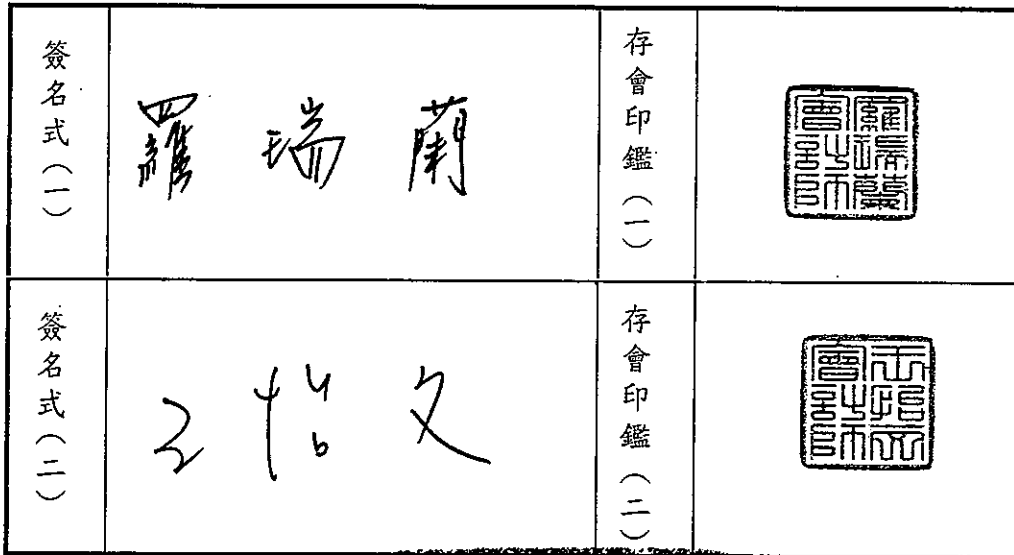 簽名式(一)
羅瑞蘭
存會印鑑(一)
羅瑞蘭會計師
簽名式(二)
王怡文
存會印鑑(二)
王怡文會計師